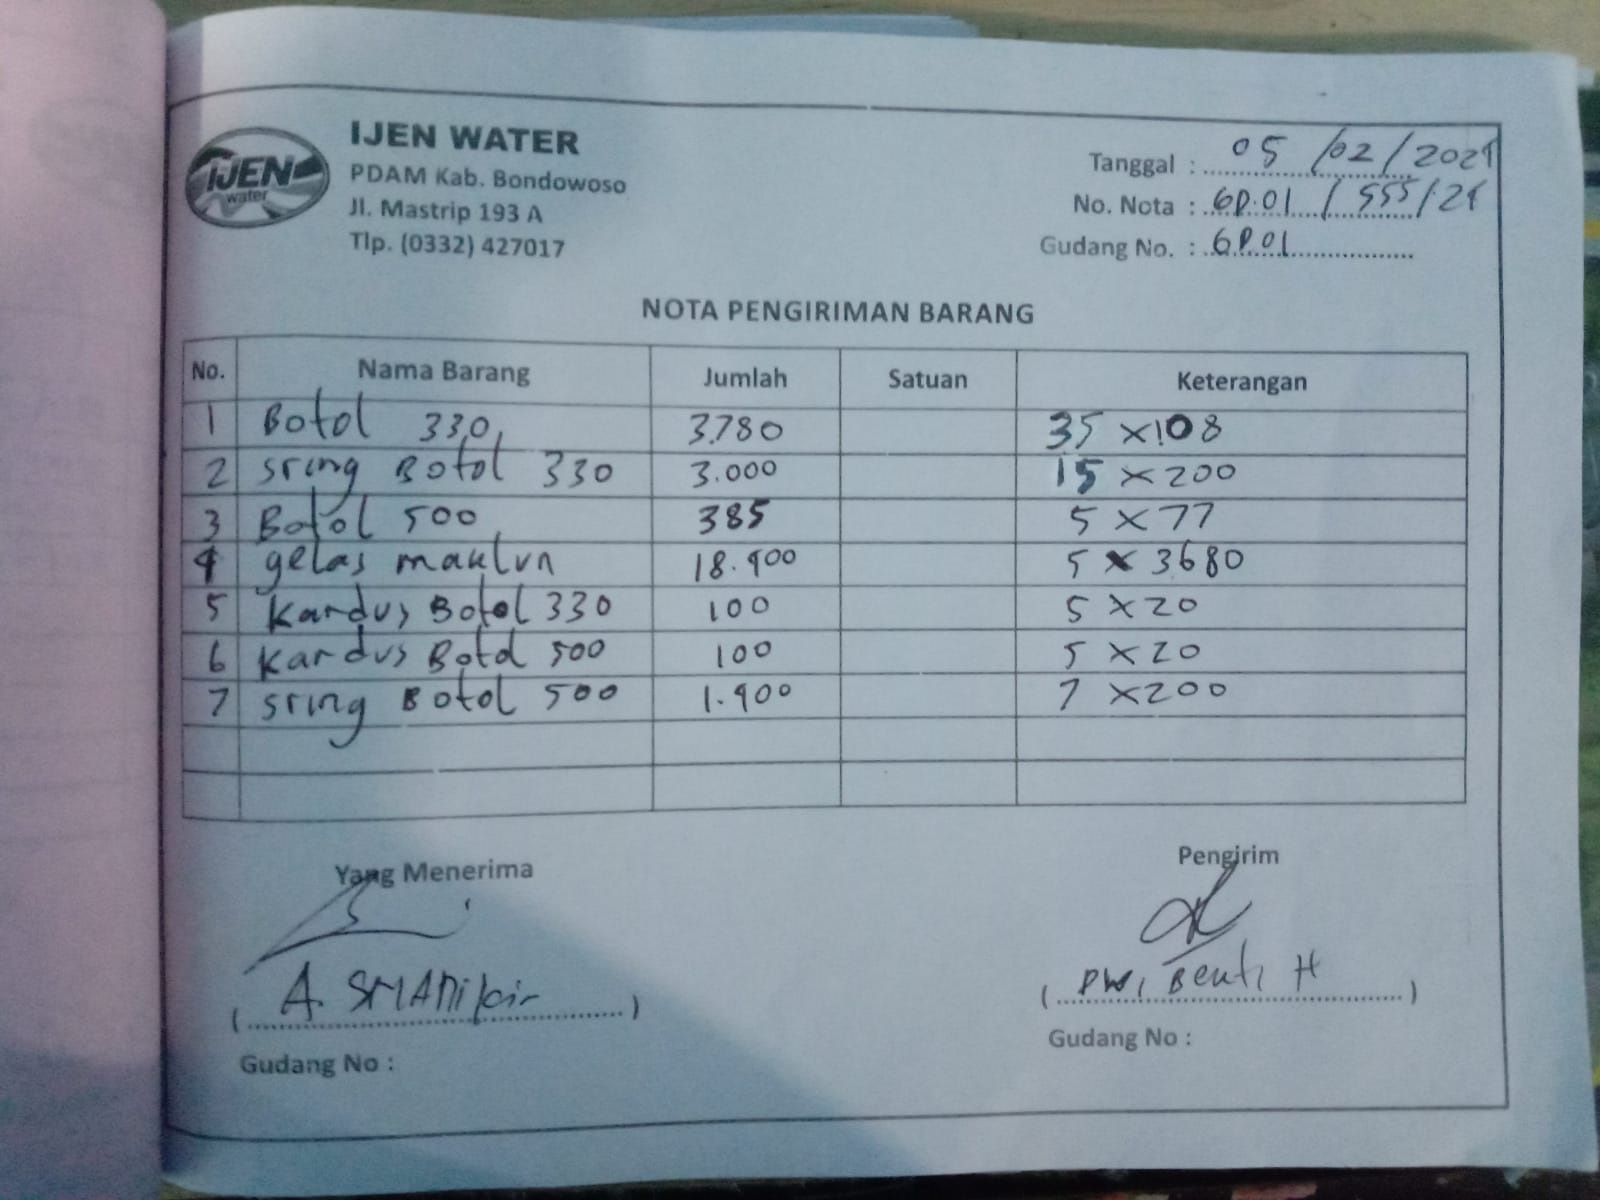 IJEN WATER
IJEN
water
PDAM Kab. Bondowoso
Jl. Mastrip 193 A
Tlp. (0332) 427017
Tanggal : 05 / 02 / 2024
No. Nota : GP.01 / 555 / 24
Gudang No. : GP.01
NOTA PENGIRIMAN BARANG
No. Nama Barang Jumlah Satuan Keterangan
1 Botol 330 3.780 35 x 108
2 sring Botol 330 3.000 15 x 200
3 Botol 500 385 5 x 77
4 gelas maklun 18.400 5 x 3680
5 Kardus Botol 330 100 5 x 20
6 Kardus Botol 500 100 5 x 20
7 sring Botol 500 1.400 7 x 200
Yang Menerima
Pengirim
( A. )
( Dwi H )
Gudang No :
Gudang No :